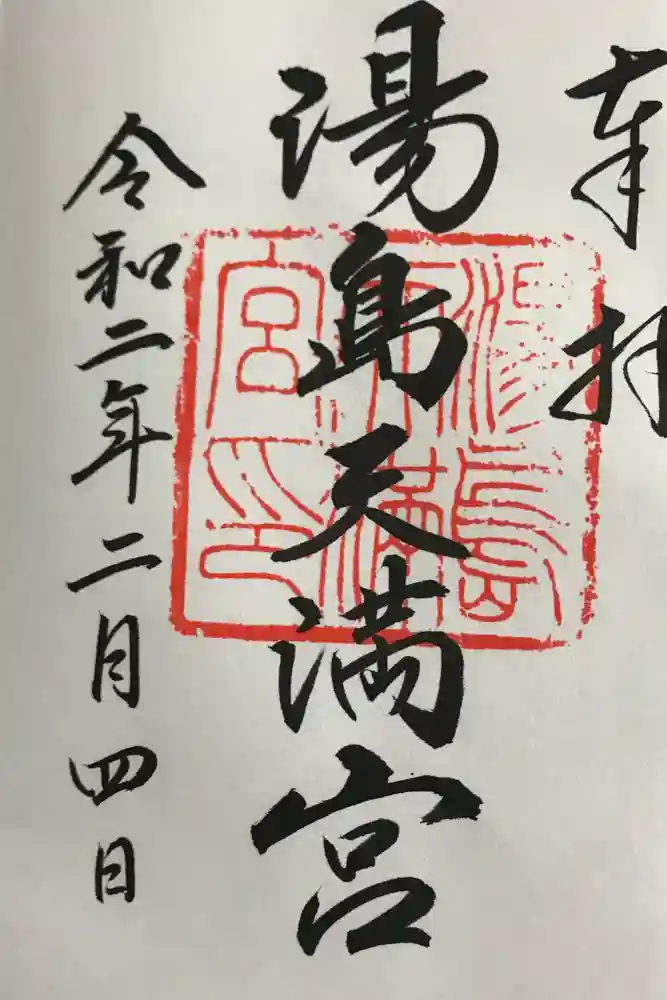 奉拝
湯島天満宮
湯島天満宮印
令和二年二月四日